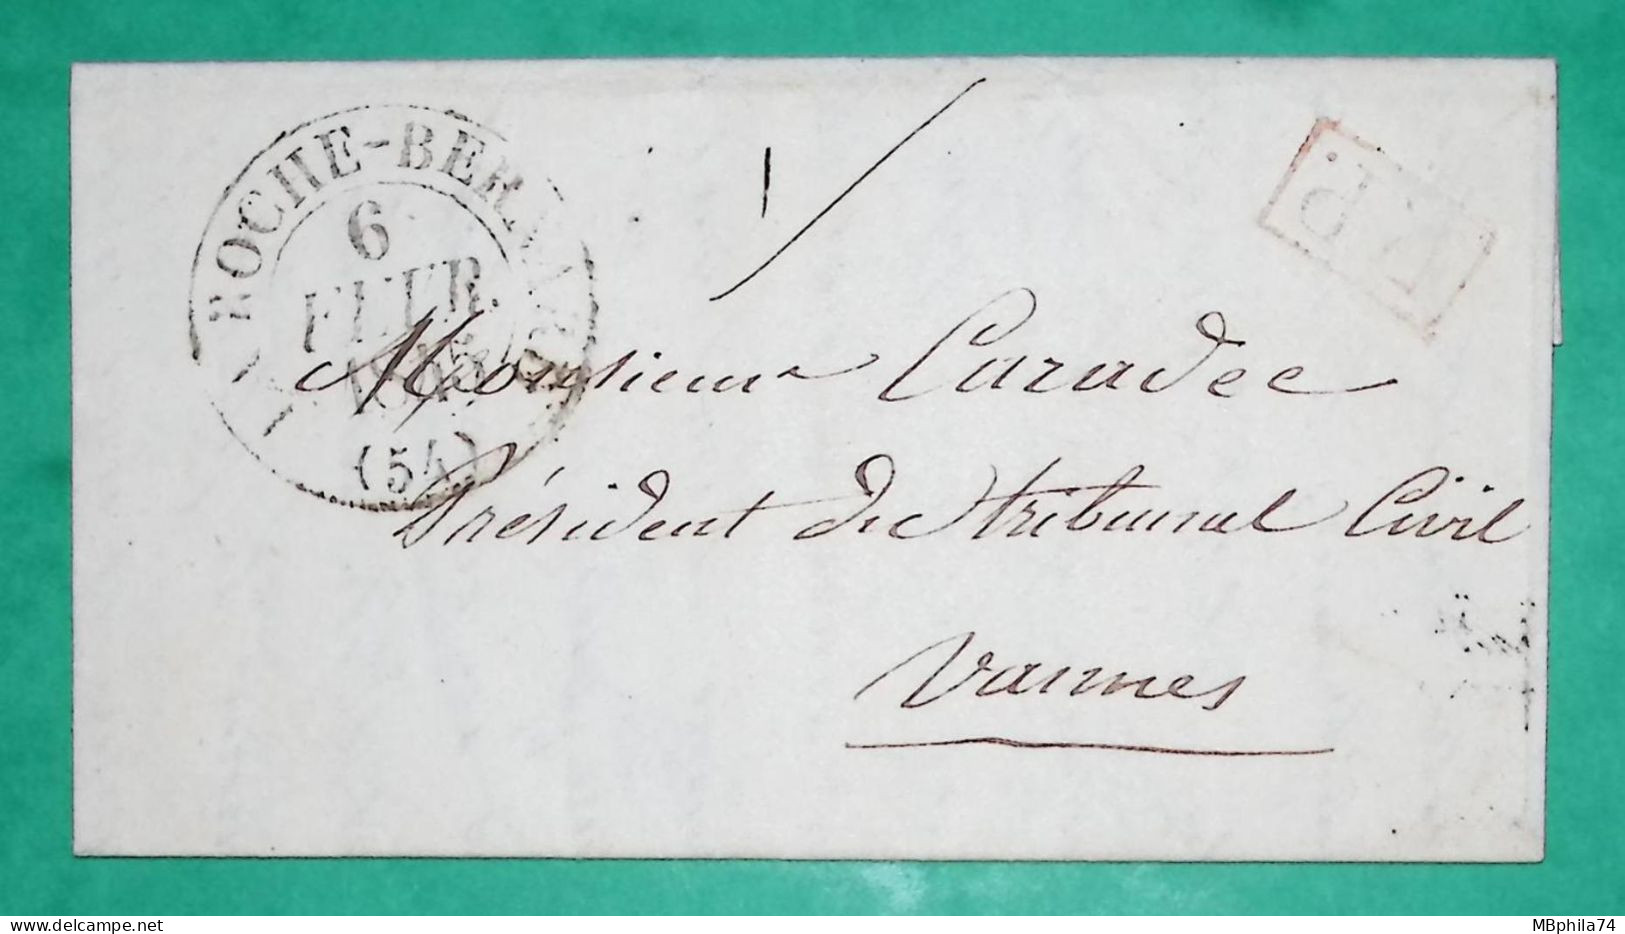 LA ROCHE-BERNARD
6
FEVR.
(54)
P.P.
Monsieur Caradec
Président du tribunal Civil
Vannes
MBphila74